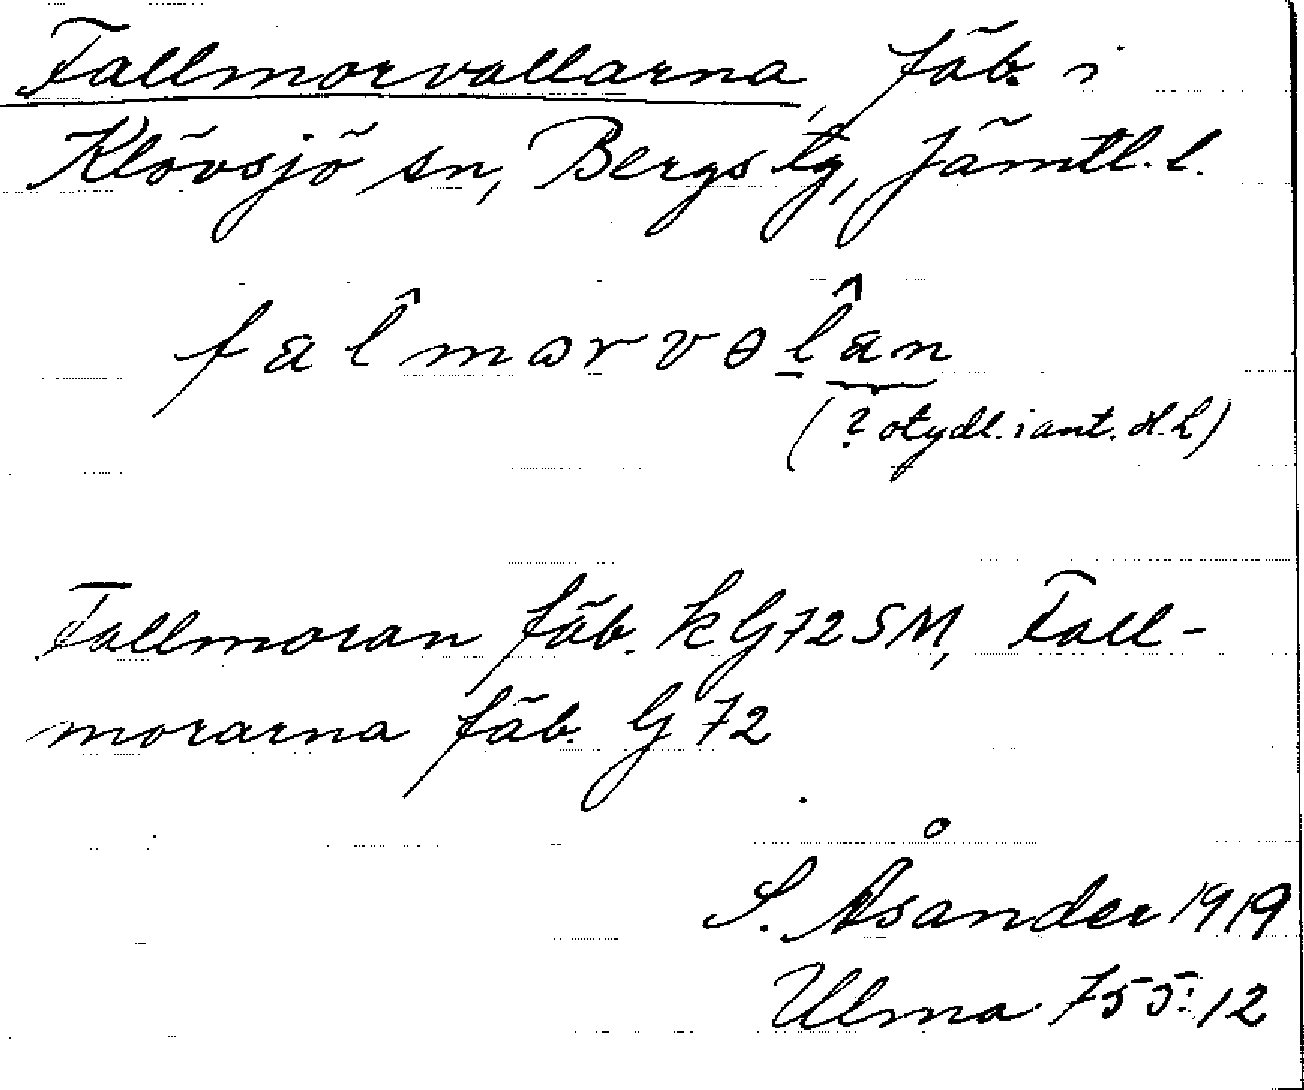 Fallmorvallarna, fäb. i
Klövsjö sn, Bergs tg, Jämtl. l.
falmɷrvɵlan
(? otydl. i ant. H.L)
Fallmoran fäb. k G 72 SM, Fall-
morarna fäb. G 72
S. Åsander 1919
Ulma 755:12